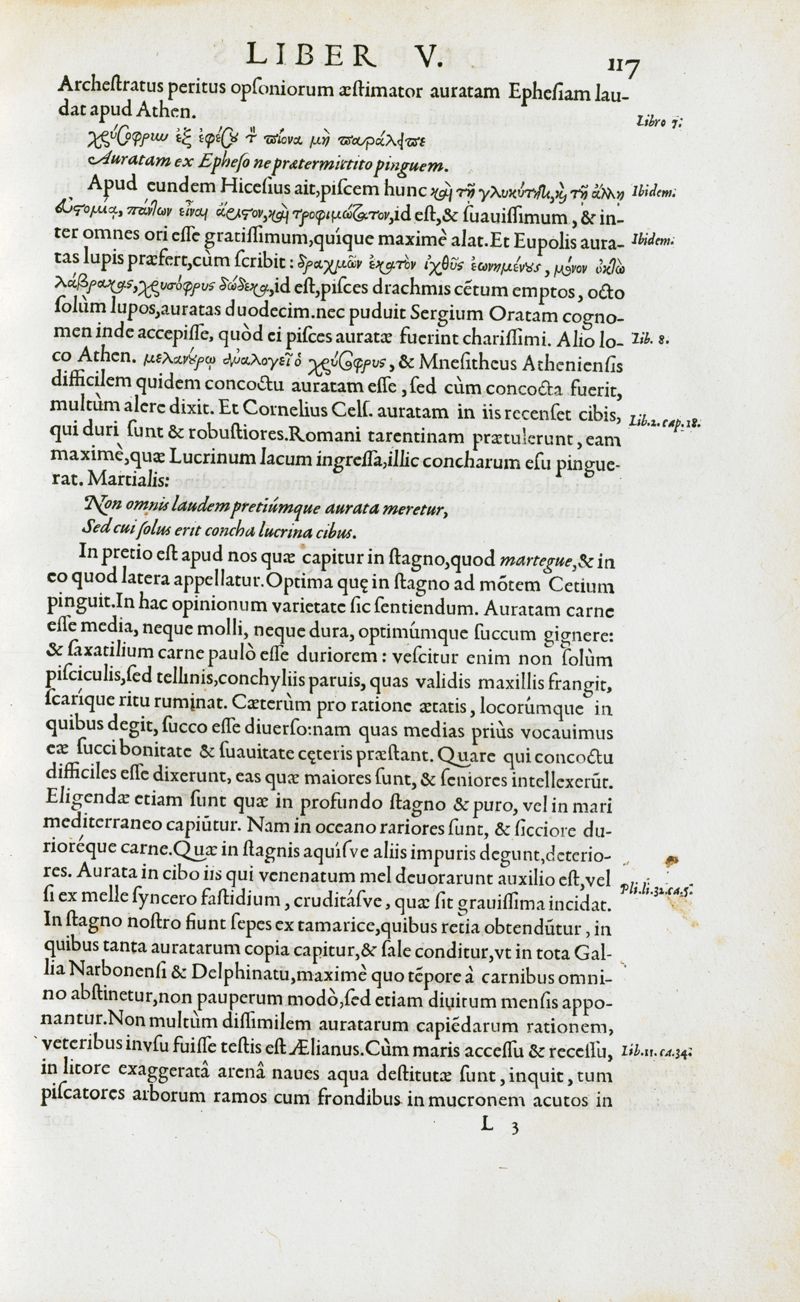 LIBER V. 117
Archeſtratus peritus opſoniorum æſtimator auratam Epheſiam lau-
dat apud Athen. Libro 7.
χρύσοφρυν ἐξ ἐφέσου τ πίονα μὴ παράλειπε
Auratam ex Epheſo ne prætermittito pinguem.
Apud eundem Hiceſius ait, piſcem hunc καὶ τῇ γλυκύτητι, καὶ τῇ ἄλλῃ Ibidem.
εὐστομίᾳ, πάντων εἶναι ἄριστον, καὶ τροφιμώτατον, id eſt, & ſuauiſſimum, & in-
ter omnes ori eſſe gratiſſimum, quíque maximè alat. Et Eupolis aura- Ibidem.
tas lupis præfert, cùm ſcribit: δραχμῶν ἑκατὸν ἰχθῦς ἐωνημένους, μόνον ὀκτὼ
λάβρακας, χρυσόφρυς δώδεκα, id eſt, piſces drachmis cẽtum emptos, octo
ſolùm lupos, auratas duodecim. nec puduit Sergium Oratam cogno-
men inde accepiſſe, quòd ei piſces auratæ fuerint chariſſimi. Alio lo- Lib. 8.
co Athen. μελανούρῳ ἀναλογεῖ ὁ χρύσοφρυς, & Mneſitheus Athenienſis
difficilem quidem concoctu auratam eſſe, ſed cùm concocta fuerit,
multùm alere dixit. Et Cornelius Celſ. auratam in iis recenſet cibis, Lib. 2. cap. 18.
qui duri ſunt & robuſtiores. Romani tarentinam prætulerunt, eam
maximè, quæ Lucrinum lacum ingreſſa, illic concharum eſu pingue-
rat. Martialis:
Non omnis laudem pretiúmque aurata meretur,
Sed cui ſolus erit concha lucrina cibus.
In pretio eſt apud nos quæ capitur in ſtagno, quod martegue, & in
eo quod latera appellatur. Optima quę in ſtagno ad mõtem Cetium
pinguit. In hac opinionum varietate ſic ſentiendum. Auratam carne
eſſe media, neque molli, neque dura, optimúmque ſuccum gignere:
& ſaxatilium carne paulò eſſe duriorem: veſcitur enim non ſolùm
piſciculis, ſed tellinis, conchyliis paruis, quas validis maxillis frangit,
ſcarique ritu ruminat. Cæterùm pro ratione ætatis, locorúmque in
quibus degit, ſucco eſſe diuerſo: nam quas medias priùs vocauimus
eæ ſucci bonitate & ſuauitate cęteris præſtant. Quare qui concoctu
difficiles eſſe dixerunt, eas quæ maiores ſunt, & ſeniores intellexerũt.
Eligendæ etiam ſunt quæ in profundo ſtagno & puro, vel in mari
mediterraneo capiũtur. Nam in oceano rariores ſunt, & ſicciore du-
rioréque carne. Quæ in ſtagnis aquíſve aliis impuris degunt, deterio-
res. Aurata in cibo iis qui venenatum mel deuorarunt auxilio eſt, vel
ſi ex melle ſyncero faſtidium, cruditáſve, quæ ſit grauiſſima incidat. Pli. li. 32. ca. 5.
In ſtagno noſtro fiunt ſepes ex tamarice, quibus retia obtendũtur, in
quibus tanta auratarum copia capitur, & ſale conditur, vt in tota Gal-
lia Narbonenſi & Delphinatu, maximè quo tẽpore à carnibus omni-
no abſtinetur, non pauperum modò, ſed etiam diuitum menſis appo-
nantur. Non multùm diſſimilem auratarum capiẽdarum rationem,
veteribus in vſu fuiſſe teſtis eſt Ælianus. Cùm maris acceſſu & receſſu, Lib. 11. ca. 34.
in litore exaggeratâ arenâ naues aqua deſtitutæ ſunt, inquit, tum
piſcatores arborum ramos cum frondibus in mucronem acutos in
L 3